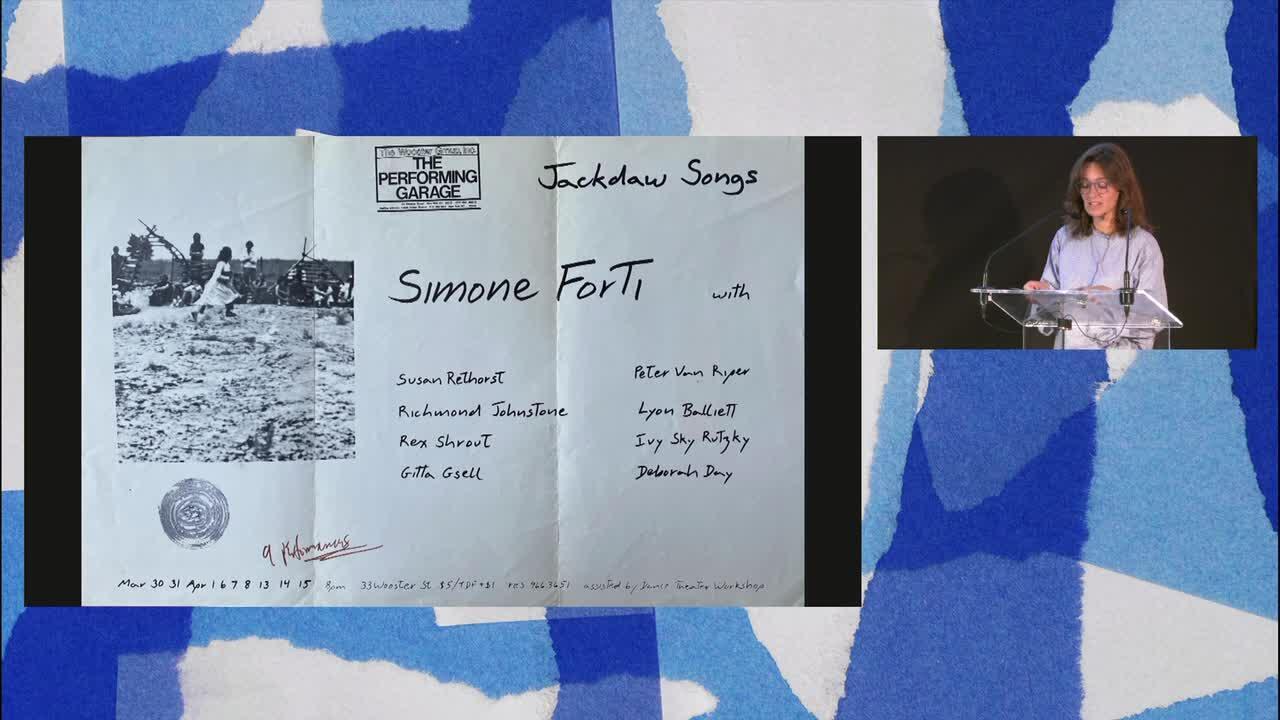 The Wooster Group, Inc.
THE
PERFORMING
GARAGE
Jackdaw Songs
Simone Forti with
Susan Rethorst
Richmond Johnstone
Rex Shrout
Gitta Gsell
Peter Van Riper
Lyon Balliett
Ivy Sky Rutzky
Deborah Day
9 performances
Mar 30 31 Apr 1 6 7 8 13 14 15 8pm 33 Wooster St $5/TDF+$1 res 9663651 assisted by Dance Theater Workshop